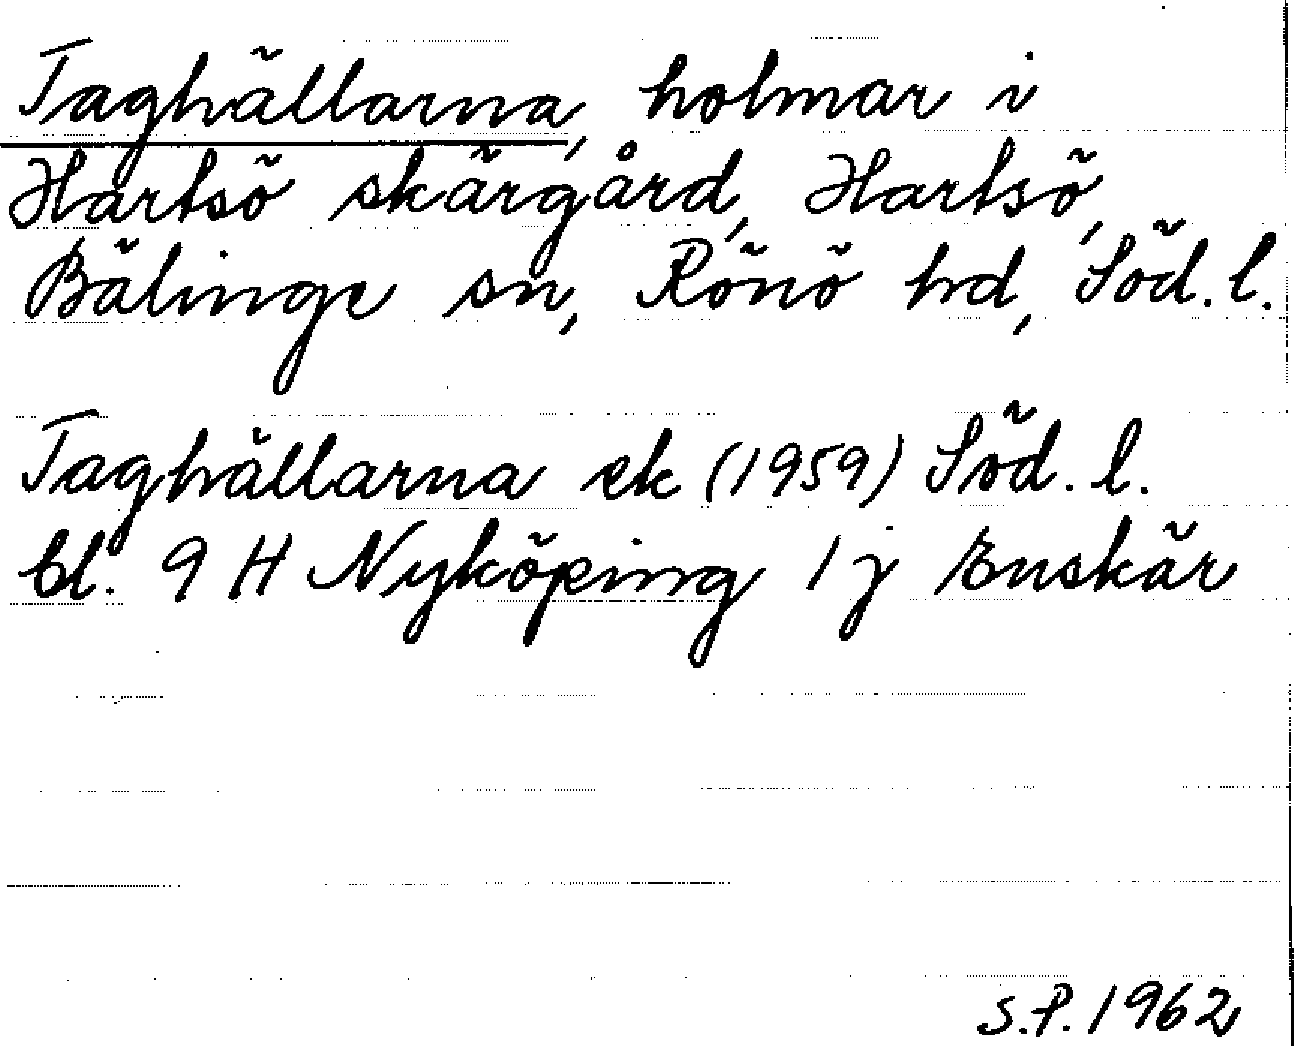 Taghällarna, holmar i
Hartsö skärgård, Hartsö,
Bälinge sn, Rönö hd, Söd. l.
Taghällarna ek (1959) Söd. l.
bl. 9 H Nyköping 1 j Enskär
S.P. 1962